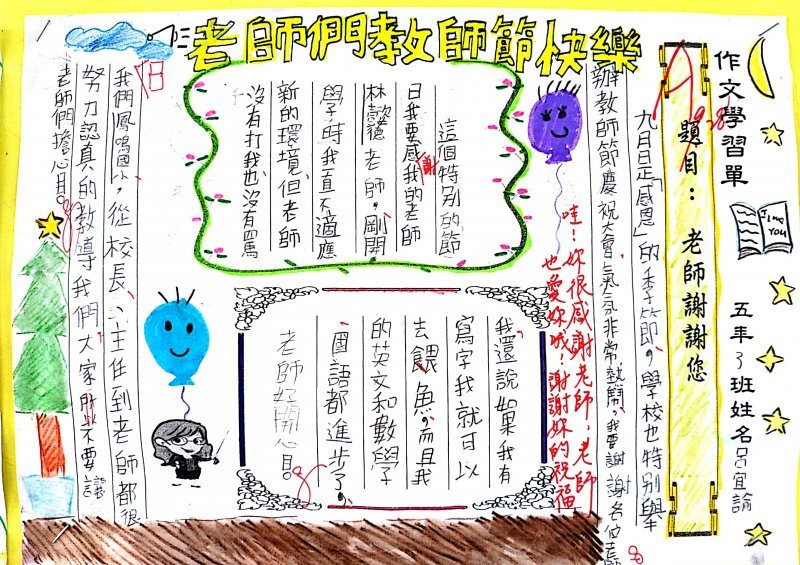 老師們教師節快樂
作文學習單
I LOVE YOU
五年3班姓名呂宜諭
題目：老師謝謝您
九月日是「感恩」的季節，學校也特別舉
辦教師節慶祝大會氣氛非常熱鬧，我要謝謝各位
哇！妳很感謝老師，老師
也愛妳哦！謝謝妳的祝福
這個特別的節
日我要感謝我的老師
林老師，剛開
學時我直不適應
新的環境，但老師
沒有打我也沒有罵
我還說如果我有
寫字我就可以
去餵魚，而且我
的英文和數學
國語都進步了，
老師好開心。
我們鳳鳴國小，從校長、主任到老師都很
努力認真的教導我們，大家不要讓
老師們擔心。